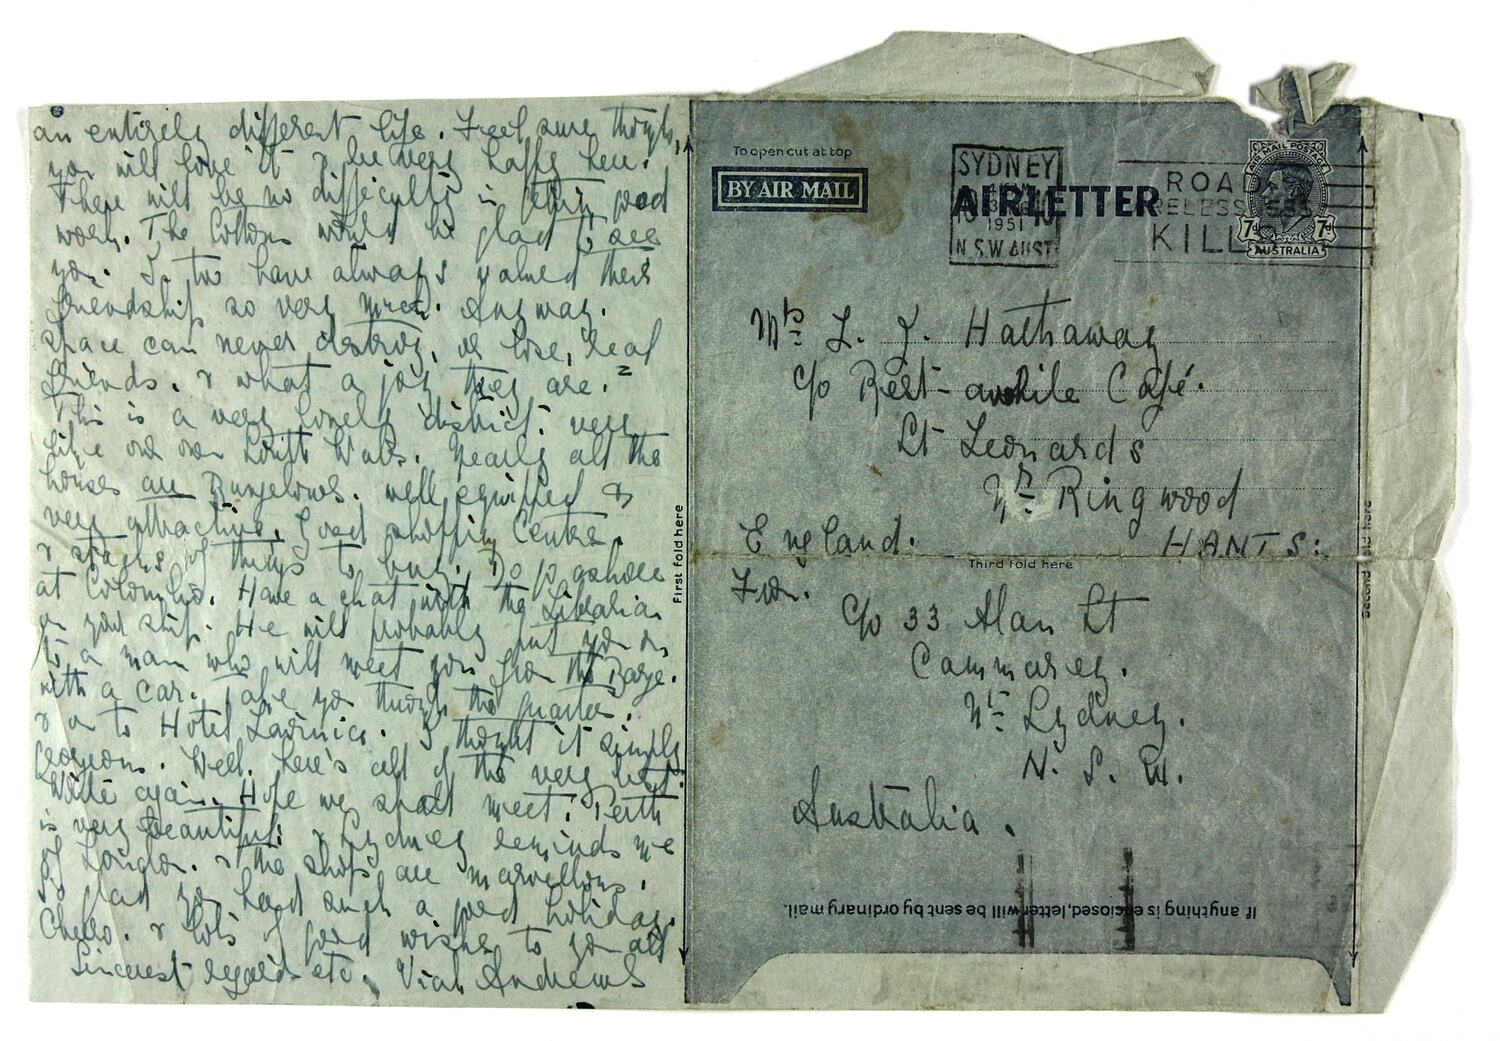 an entirely different life. Feel sure though,
you will love it & be very happy here.
There will be no difficulty in getting good
work. The Cottons would be glad to see
you. I too have always valued their
friendship so very much. Anyway.
space can never destroy, or lose, real
friends. & what a joy they are."
This is a very lovely district: very
like our own South Wales. Nearly all the
houses are Bungelows. well equipped &
very attractive. Good shopping Centre.
& stacks of things to buy. Do go ashore
at Colombo. Have a chat with the Librarian
on your ship. He will probably put you on
to a man who will meet you from the Barge.
with a car. Take you through the quarter.
& on to Hotel Lavinica. I thought it simply
Georgeous. Well. here's all of the very best.
Write again. Hope we shall meet. Perth
is very beautiful: & Sydney reminds me
of London. & the shops are marvellous.
So glad you had such a good holiday.
Cheerio. & lots of good wishes to you all
Sincerest regards etc. Andrews
To open cut at top
BY AIR MAIL
AIR LETTER
SYDNEY
1951
N.S.W. AUST.
ROAD
KILL
AIR MAIL POSTAGE
7d 7d
AUSTRALIA
Mrs L. J. Hathaway
c/o Rest-awhile Café.
St Leonards
Nr Ringwood
England. HANTS:
First fold here
Second fold here
Third fold here
From.
c/o 33 Alan St
Cammarey.
Nth Sydney.
N. S. W.
Australia.
If anything is enclosed, letter will be sent by ordinary mail.